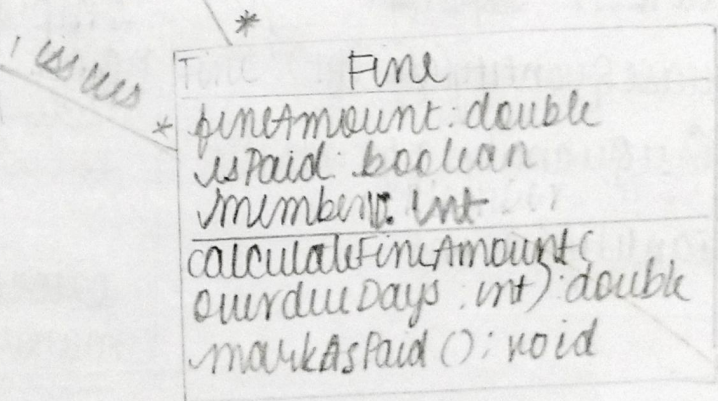 *
issues
*
Fine
fineAmount: double
isPaid: boolean
: int
calculateFineAmount(
overdueDays: int): double
markAsPaid(): void